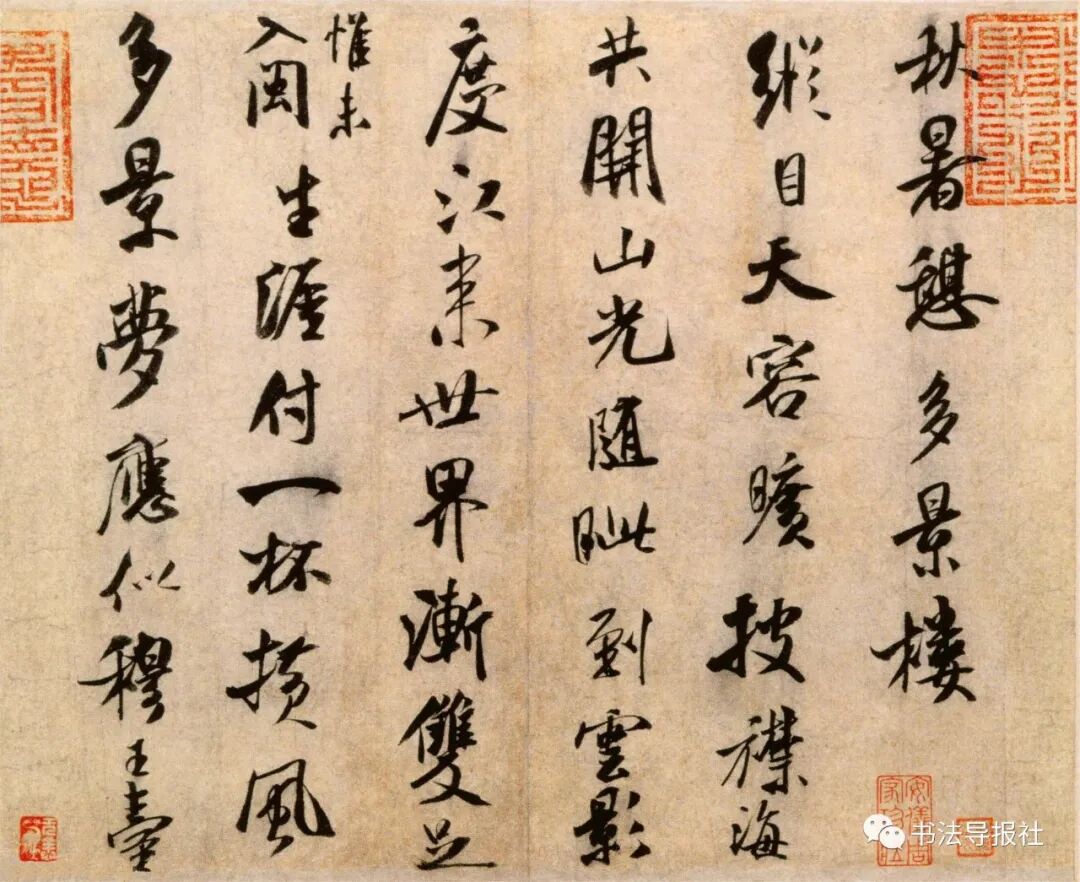 秋暑憩多景樓
縱目天容曠披襟海
共開山光隨眦到雲影
度江来世界漸雙足
惟未
入閩生涯付一杯横風
多景夢應似穆王臺
书法导报社